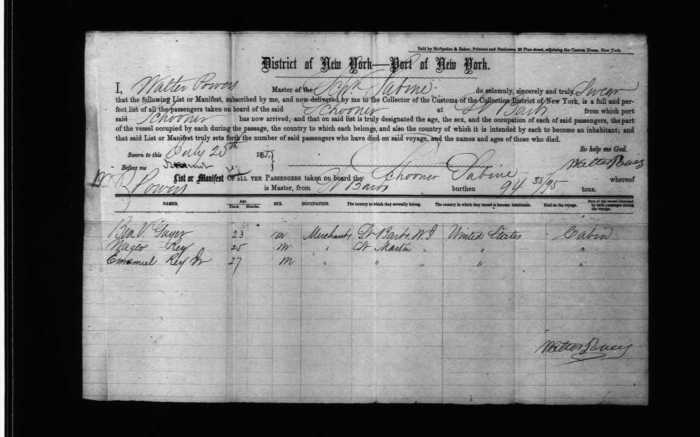 Sold by McSpedon & Baker, Printers and Stationers, 25 Pine street, adjoining the Custom House, New York.
District of New York—Port of New York.
I, Walter Powers Master of the Sch Sabine do solemnly, sincerely and truly Swear
that the following List or Manifest, subscribed by me, and now delivered by me to the Collector of the Customs of the Collection District of New York, is a full and per-
fect list of all the passengers taken on board of the said Schooner at St Barts from which port
said Schooner has now arrived; and that on said list is truly designated the age, the sex, and the occupation of each of said passengers, the part
of the vessel occupied by each during the passage, the country to which each belongs, and also the country of which it is intended by each to become an inhabitant; and
that said List or Manifest truly sets forth the number of said passengers who have died on said voyage, and the names and ages of those who died.
Sworn to this July 25th 187 So help me God.
Before me Walter Powers
List or Manifest OF ALL THE PASSENGERS taken on board the Schooner Sabine whereof
W Powers is Master, from St Barts burthen 94 33/95 tons.
NAMES. AGE Years. Months. SEX. OCCUPATION. The country to which they severally belong. The country to which they intend to become inhabitants. Died on the voyage. Part of the vessel occupied by each passenger during the voyage.
23 m Merchants St Barts W.I United States Cabin
Rey 25 m " St Martin " " "
Emanuel Rey 27 m " " "
Walter Powers